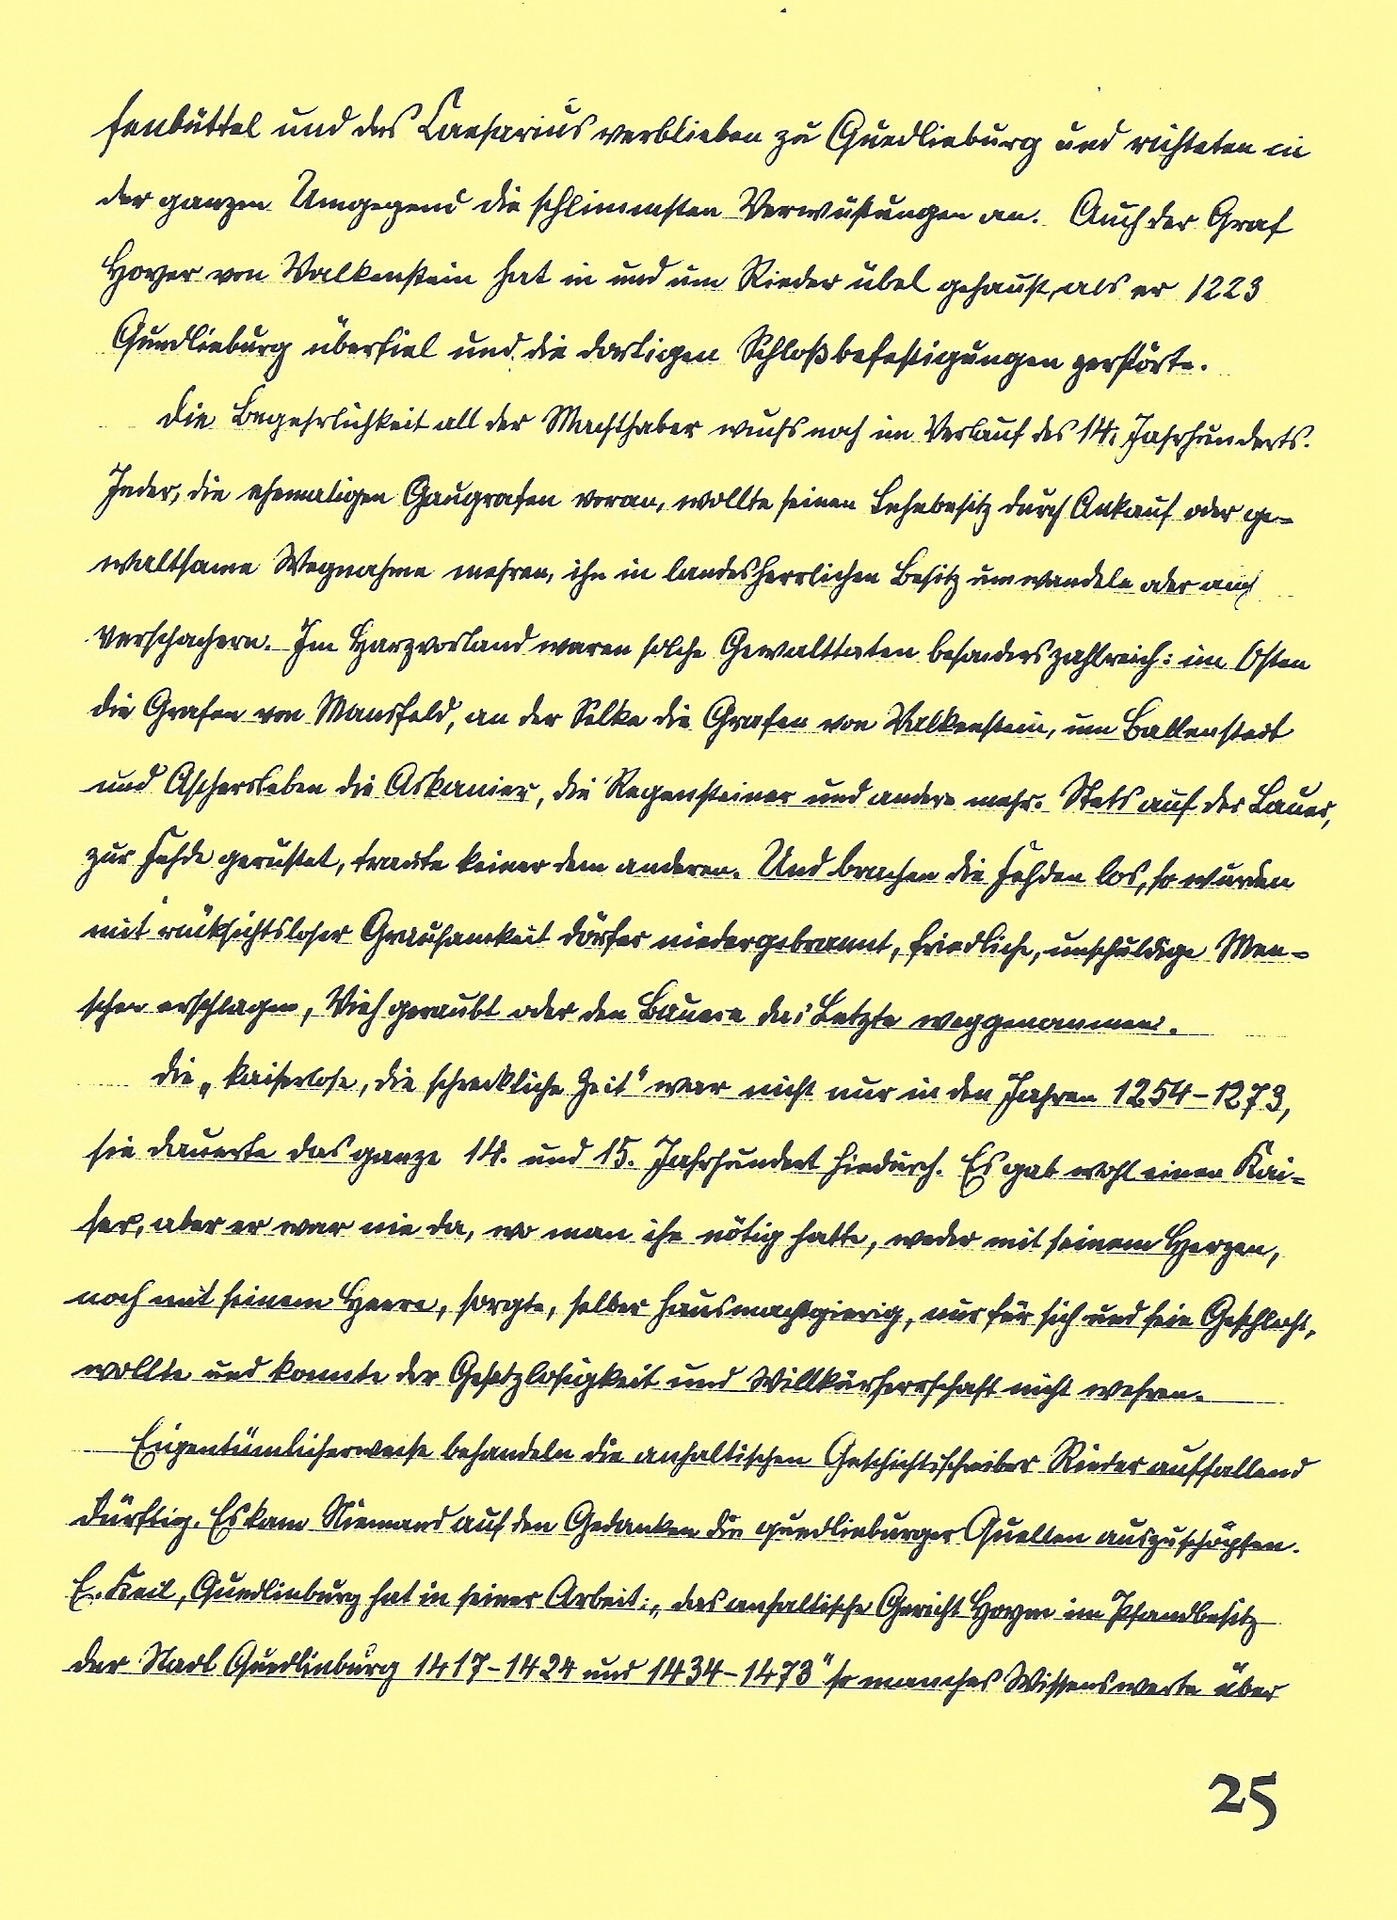 fenbüttel und des Caesarius verblieben zu Quedlinburg und richteten in
der ganzen Umgegend die schlimmsten Verwüstungen an. Auch der Graf
Hoyer von Valkenstein hat in und um Rieder übel gehaust, als er 1223
Quedlinburg überfiel und die dortigen Schloßbefestigungen zerstörte.
Die Begehrlichkeit all der Machthaber wuchs noch im Verlauf des 14. Jahrhunderts.
Jeder, die ehemaligen Gaugrafen voran, wollte seinen Lehnbesitz durch Ankauf oder ge-
waltsame Wegnahme mehren, ihn in landesherrlichen Besitz umwandeln oder auch
verschachern. Im Harzvorland waren solche Gewalttaten besonders zahlreich: im Osten
die Grafen von Mansfeld, an der Selke die Grafen von Valkenstein, um Ballenstedt
und Aschersleben die Askanier, die Regensteiner und andere mehr. Stets auf der Lauer,
zur Fehde gerüstet, traute keiner dem anderen. Und brachen die Fehden los, so wurden
mit rücksichtsloser Grausamkeit Dörfer niedergebrannt, friedliche, unschuldige Men-
schen erschlagen, Vieh geraubt oder den Bauern das Letzte weggenommen.
Die „kaiserlose, die schreckliche Zeit" war nicht nur in den Jahren 1254-1273,
sie dauerte das ganze 14. und 15. Jahrhundert hindurch. Es gab wohl einen Kai-
ser, aber er war nie da, wo man ihn nötig hatte, weder mit seinem Herzen,
noch mit seinem Heere, sorgte, selber hausmachtgierig, nur für sich und sein Geschlecht,
wollte und konnte der Gesetzlosigkeit und Willkürherrschaft nicht wehren.
Eigentümlicherweise behandeln die anhaltischen Geschichtsschreiber Rieder auffallend
dürftig. Es kam Niemand auf den Gedanken die quedlinburger Quellen auszuschöpfen.
E. Keil, Quedlinburg hat in seiner Arbeit: „das anhaltische Gericht Hoym im Pfandbesitz
der Stadt Quedlinburg 1417-1424 und 1434-1473" so manches Wissenswerte über
25